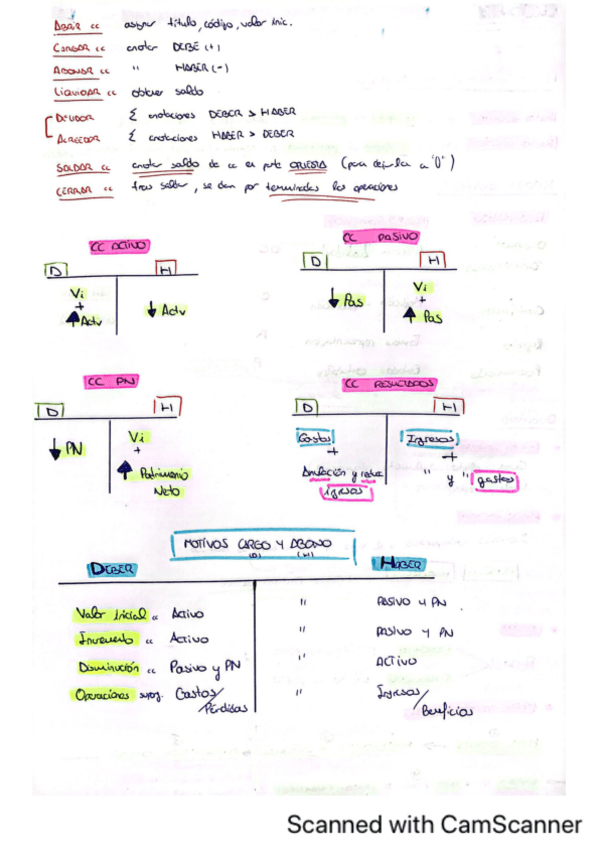 ABRIR cc asignar título, código, valor inic.
CARGAR cc anotar DEBE (+)
ABONAR cc " HABER (-)
LIQUIDAR cc obtener saldo
DEUDOR Σ anotaciones DEBER > HABER
ACREEDOR Σ anotaciones HABER > DEBER
SALDAR cc anotar saldo de cc en parte OPUESTA (para dejarla a "0")
CERRAR cc tras saldar, se dan por terminadas las operaciones
CC ACTIVO
D H
Vi
+
↑ Actv ↓ Actv
CC PASIVO
D H
↓ Pas Vi
+
↑ Pas
CC PN
D H
↓ PN Vi
+
↑ Patrimonio
Neto
CC RESULTADOS
D H
Gastos Ingresos
+ +
Anulación y reduc " y " gastos
igresos
MOTIVOS CARGO Y ABONO
(D) (H)
DEBER HABER
Valor Inicial cc Activo " PASIVO y PN
Incremento cc Activo " PASIVO y PN
Disminución cc Pasivo y PN " ACTIVO
Operaciones supg. Gastos/ " Ingresos/
Pérdidas Beneficios
Scanned with CamScanner